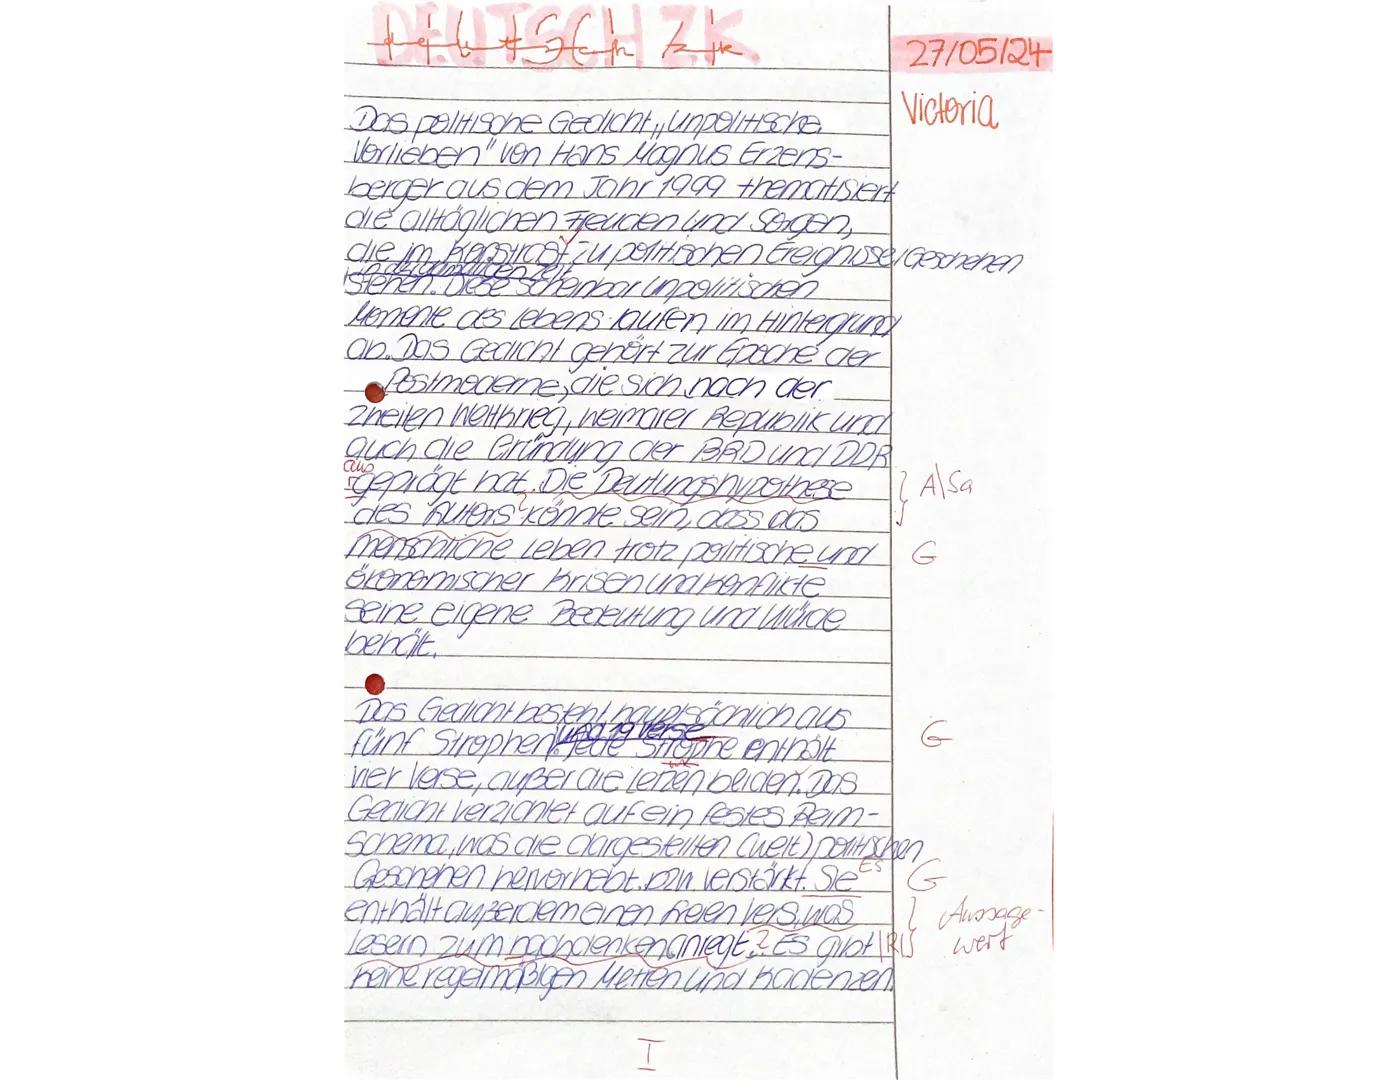 DEUTSCH ZK
27/05/24
Victoria
Das politische Gedicht „unpolitische
Vorlieben" von Hans Magnus Erzens-
berger aus dem Jahr 1999 thematisiert
die alltäglichen Freuden und Sorgen,
die im Konstrast zu politischen Ereignisse/Geschehen
in der damaligen Zeit
stehen. Diese scheinbar unpolitischen
Momente des Lebens laufen im Hintergrund
ab. Das Gedicht gehört zur Epoche der
Postmoderne, die sich nach der
zweiten Weltkrieg, Weimarer Republik und
auch die Gründung der BRD und DDR
aus
geprägt hat. Die Deutungshypothese } A\Sa
des Autors könnte sein, dass das
menschliche Leben trotz politische und G
ökonomischer Krisen und Konflikte
seine eigene Bedeutung und Würde
behält.
Das Gedicht besteht hauptsächlich aus
und 19 Verse G
fünf Strophen. Jede Strophe enthält
vier Verse, außer die letzen beiden. Das
Gedicht verzichtet auf ein festes Reim-
schema, was die dargestellten (welt) politischen
Geschehen hervorhebt bzw. verstärkt. Sie Es G
enthält außerdem einen freien Vers, was } Aussage-
Lesern zum nachdenken anregt.? Es gibt |R| wert
keine regelmäßigen Metren und Kadenzen.
I